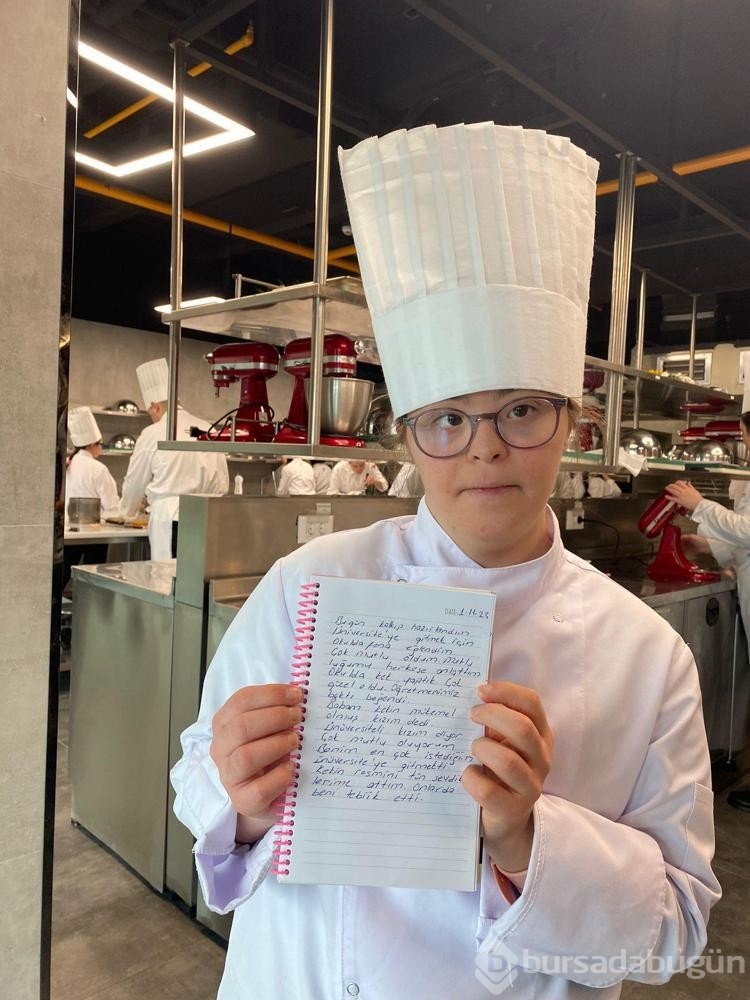 DATE: 1.11.23
Bugün kalkıp hazırlandım
Üniversite'ye gitmek için
Okulda fena eğlendim
Çok mutlu oldum mutlu
luğumu herkese anlattım
Okulda kek yaptık Çok
güzel oldu. Öğretmenimiz
baktı beğendi.
Babam kekin mükemel
olmuş kızım dedi.
Üniversiteli kızım diyor
Çok mutlu oluyorum
Benim en çok istediğim
üniversite'ye gitmekti
kekin resmini tüm sevdik
lerime attım. Onlarda
beni tebrik etti.
bursadabugün